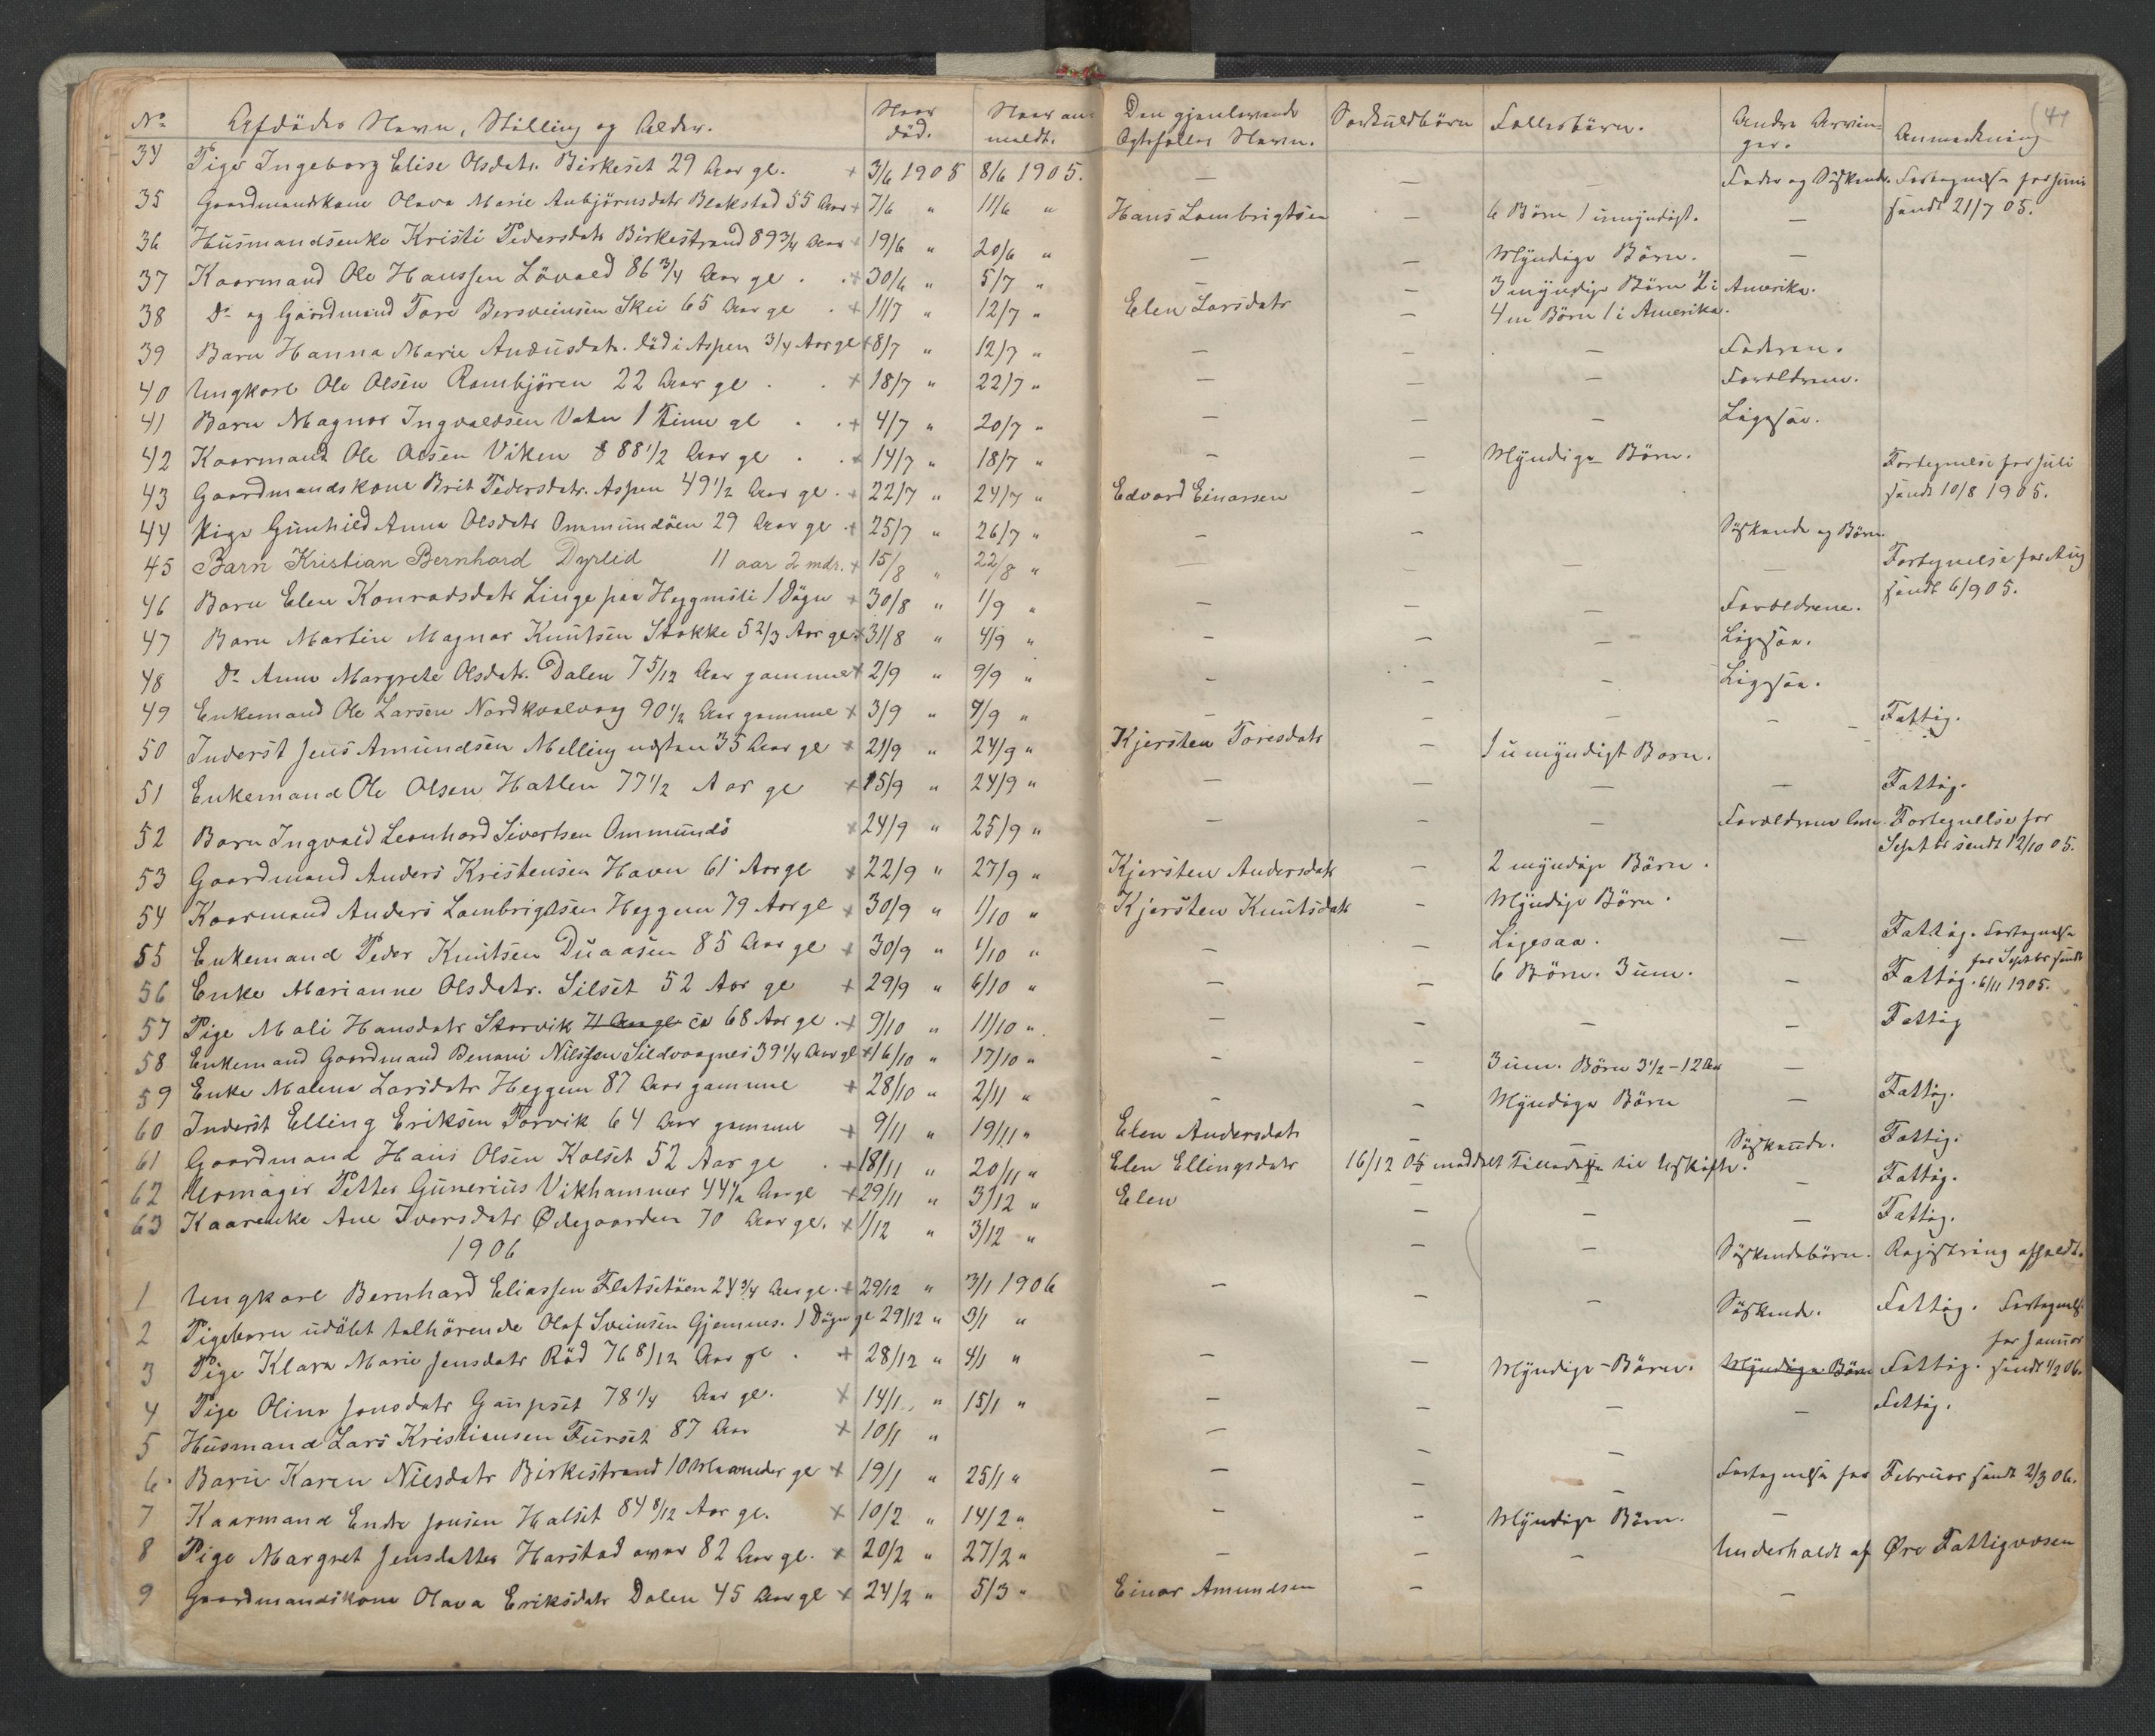 No Afdödes Navn, Stilling og Alder. Naar död. Naar anmeldt. Den gjenlevende Ægtefælles Navn. Særkuldbörn Fællesbörn. Andre Arvinger. Anmerkning (41
34 Pige Ingeborg Elise Olsdatr. Birkeset 29 Aar gl. + 3/6 1905 8/6 1905. — — — Fader og Söskende. Fortegnelse for Juni
35 Gaardmandskone Olava Marie Anbjörnsdatr Blakstad 55 Aar + 7/6 " 11/6 " Hans Lambrigtsen — 6 Börn 1 umyndigt. — sendt 21/7 05.
36 Husmandsenke Kristi Pedersdatr Birkestrand 89 3/4 Aar + 19/6 " 20/6 " — — Myndige Börn. —
37 Kaarmand Ole Hanssen Lövold 86 3/4 Aar gl . . + 30/6 " 5/7 " — — 3 myndige Börn 2 i Amerika.
38 Do og Gaardmand Tore Bersveinsen Skei 65 Aar gl . + 11/7 " 12/7 " Elen Larsdatr — 4 m Börn 1 i Amerika.
39 Barn Hanna Marie Andersdatr. död i Aspen 3/4 Aar gl + 8/7 " 12/7 " — — — Faderen.
40 Ungkarl Ole Olsen Rambjören 22 Aar gl . . + 18/7 " 22/7 " — — — Forældrene.
41 Barn Magnor Ingvaldsen Vatn 1 Time gl . . + 4/7 " 20/7 " — — — Ligesaa.
42 Kaarmand Ole Olsen Viken 88 1/2 Aar gl . . + 14/7 " 18/7 " — — Myndige Börn.
43 Gaardmandskone Brit Pedersdatr. Aspen 49 1/2 Aar gl . + 22/7 " 24/7 " Edvard Einarsen — Fortegnelse for Juli sendt 10/8 1905.
44 Pige Gunhild Anna Olsdatr Ommundöen 29 Aar gl + 25/7 " 26/7 " — — Söskende og Börn
45 Barn Kristian Bernhard Dyrlid 11 aar 2 mdr. + 15/8 " 22/8 " — — — — Fortegnelse for Aug
46 Barn Elen Konradsdatr Linge paa Heggmsli 1 Dögn + 30/8 " 1/9 " — — — Forældrene. sendt 6/9 05.
47 Barn Martin Magnar Knutsen Stokke 5 2/3 Aar gl + 31/8 " 4/9 " — — — Ligesaa.
48 Do Anna Margrete Olsdatr. Dalen 7 5/12 Aar gammel + 2/9 " 9/9 " — — — Ligesaa.
49 Enkemand Ole Larsen Nordkvalvaag 90 1/2 Aar gammel + 3/9 " 9/9 " — — — — Fattig.
50 Inderst Jens Amundsen Melling næsten 35 Aar gl + 21/9 " 24/9 " Kjersten Toresdatr — 1 umyndigt Barn.
51 Enkemand Ole Olsen Hatlen 77 1/2 Aar gl + 15/9 " 24/9 " — — — — Fattig.
52 Barn Ingvald Leonhard Sivertsen Ommundö + 24/9 " 25/9 " — — — Forældrene Fortegnelse for
Septbr sendt 12/10 05.
53 Gaardmand Anders Kristensen Havn 61 Aar gl + 22/9 " 27/9 " Kjersten Andersdatr — 2 myndige Börn.
54 Kaarmand Anders Lambrigtsen Heggem 79 Aar gl + 30/9 " 1/10 " Kjersten Knutsdatr — Myndige Börn.
55 Enkemand Peder Knutsen Duaasen 85 Aar gl + 30/9 " 1/10 " — — Ligesaa. — Fattig. Fortegnelse
56 Enke Marianne Olsdatr. Silset 52 Aar gl + 29/9 " 6/10 " — — 6 Börn. 3 um. — Fattig. for Septbr sendt 6/11 1905.
57 Pige Mali Hansdatr Storvik ca 68 Aar gl . + 9/10 " 11/10 " — — — — Fattig
58 Enkemand Gaardmand Benoni Nilssen Sildvaagnes 39 1/4 Aar gl + 16/10 " 17/10 " — — 3 um. Börn 3 1/2 - 12 Aar —
59 Enke Malena Larsdatr Heggem 87 Aar gammel + 28/10 " 2/11 " — — Myndige Börn — Fattig.
60 Inderst Elling Eriksen Torvik 64 Aar gammel + 9/11 " 19/11 " Elen Andersdatr — Söskende. Fattig.
61 Gaardmand Hans Olsen Kolset 52 Aar gl . + 18/11 " 20/11 " Elen Ellingsdatr 16/12 05 meddelt Tilladelse til Uskifte. Fattig.
62 Urmager Petter Gunerius Vikhammer 44 1/2 Aar gl + 29/11 " 3/12 " Elen — — — Fattig.
63 Kaarenke Ane Iversdatr Ødegaarden 70 Aar gl. + 1/12 " 3/12 " — — Söskendebörn. Registrering afholdt.
1906
1 Ungkarl Bernhard Eliassen Flatsetöen 24 3/4 Aar gl. + 29/12 " 3/1 1906 — — — Söskende. Fattig. Fortegnelse
2 Pigebarn udöbt tilhörende Olaf Sveinsen Gjemnes. 1 Dögn gl 29/12 " 3/1 " for Januar
3 Pige Klara Marie Jensdatr Röd 76 8/12 Aar gl . + 28/12 " 4/1 " — — Myndige Börn. Myndige Börn Fattig. sendt 1/2 06.
4 Pige Olina Jonsdatr Gaupset 78 1/4 Aar gl. + 14/1 " 15/1 " — — — — Fattig.
5 Husmand Lars Kristiansen Furset 87 Aar + 10/1 " — — —
6 Barn Karen Nilsdatr Birkestrand 10 Maaneder gl + 19/1 " 25/1 " — — — Fortegnelse for Februar sendt 2/3 06.
7 Kaarmand Endre Jonsen Halset 84 8/12 Aar gl. + 10/2 " 14/2 " — — Myndige Börn. —
8 Pige Margret Jensdatter Harstad over 82 Aar gl. + 20/2 " 27/2 " — — — Underholdt af Øre Fattigvæsen
9 Gaardmandskone Olava Eriksdatr Dalen 45 Aar gl + 24/2 " 5/3 " Einar Amundsen — —